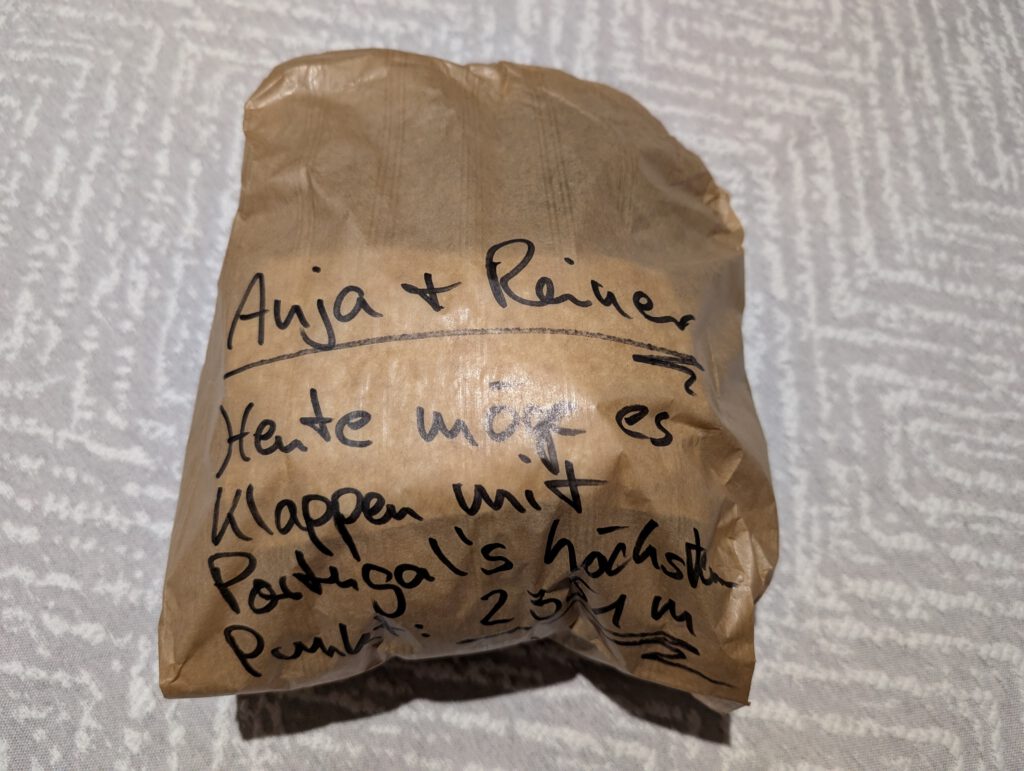 Anja + Reiner
Heute mög es
Klappen mit
Portugal's höchsten
Punkt: 2351 m